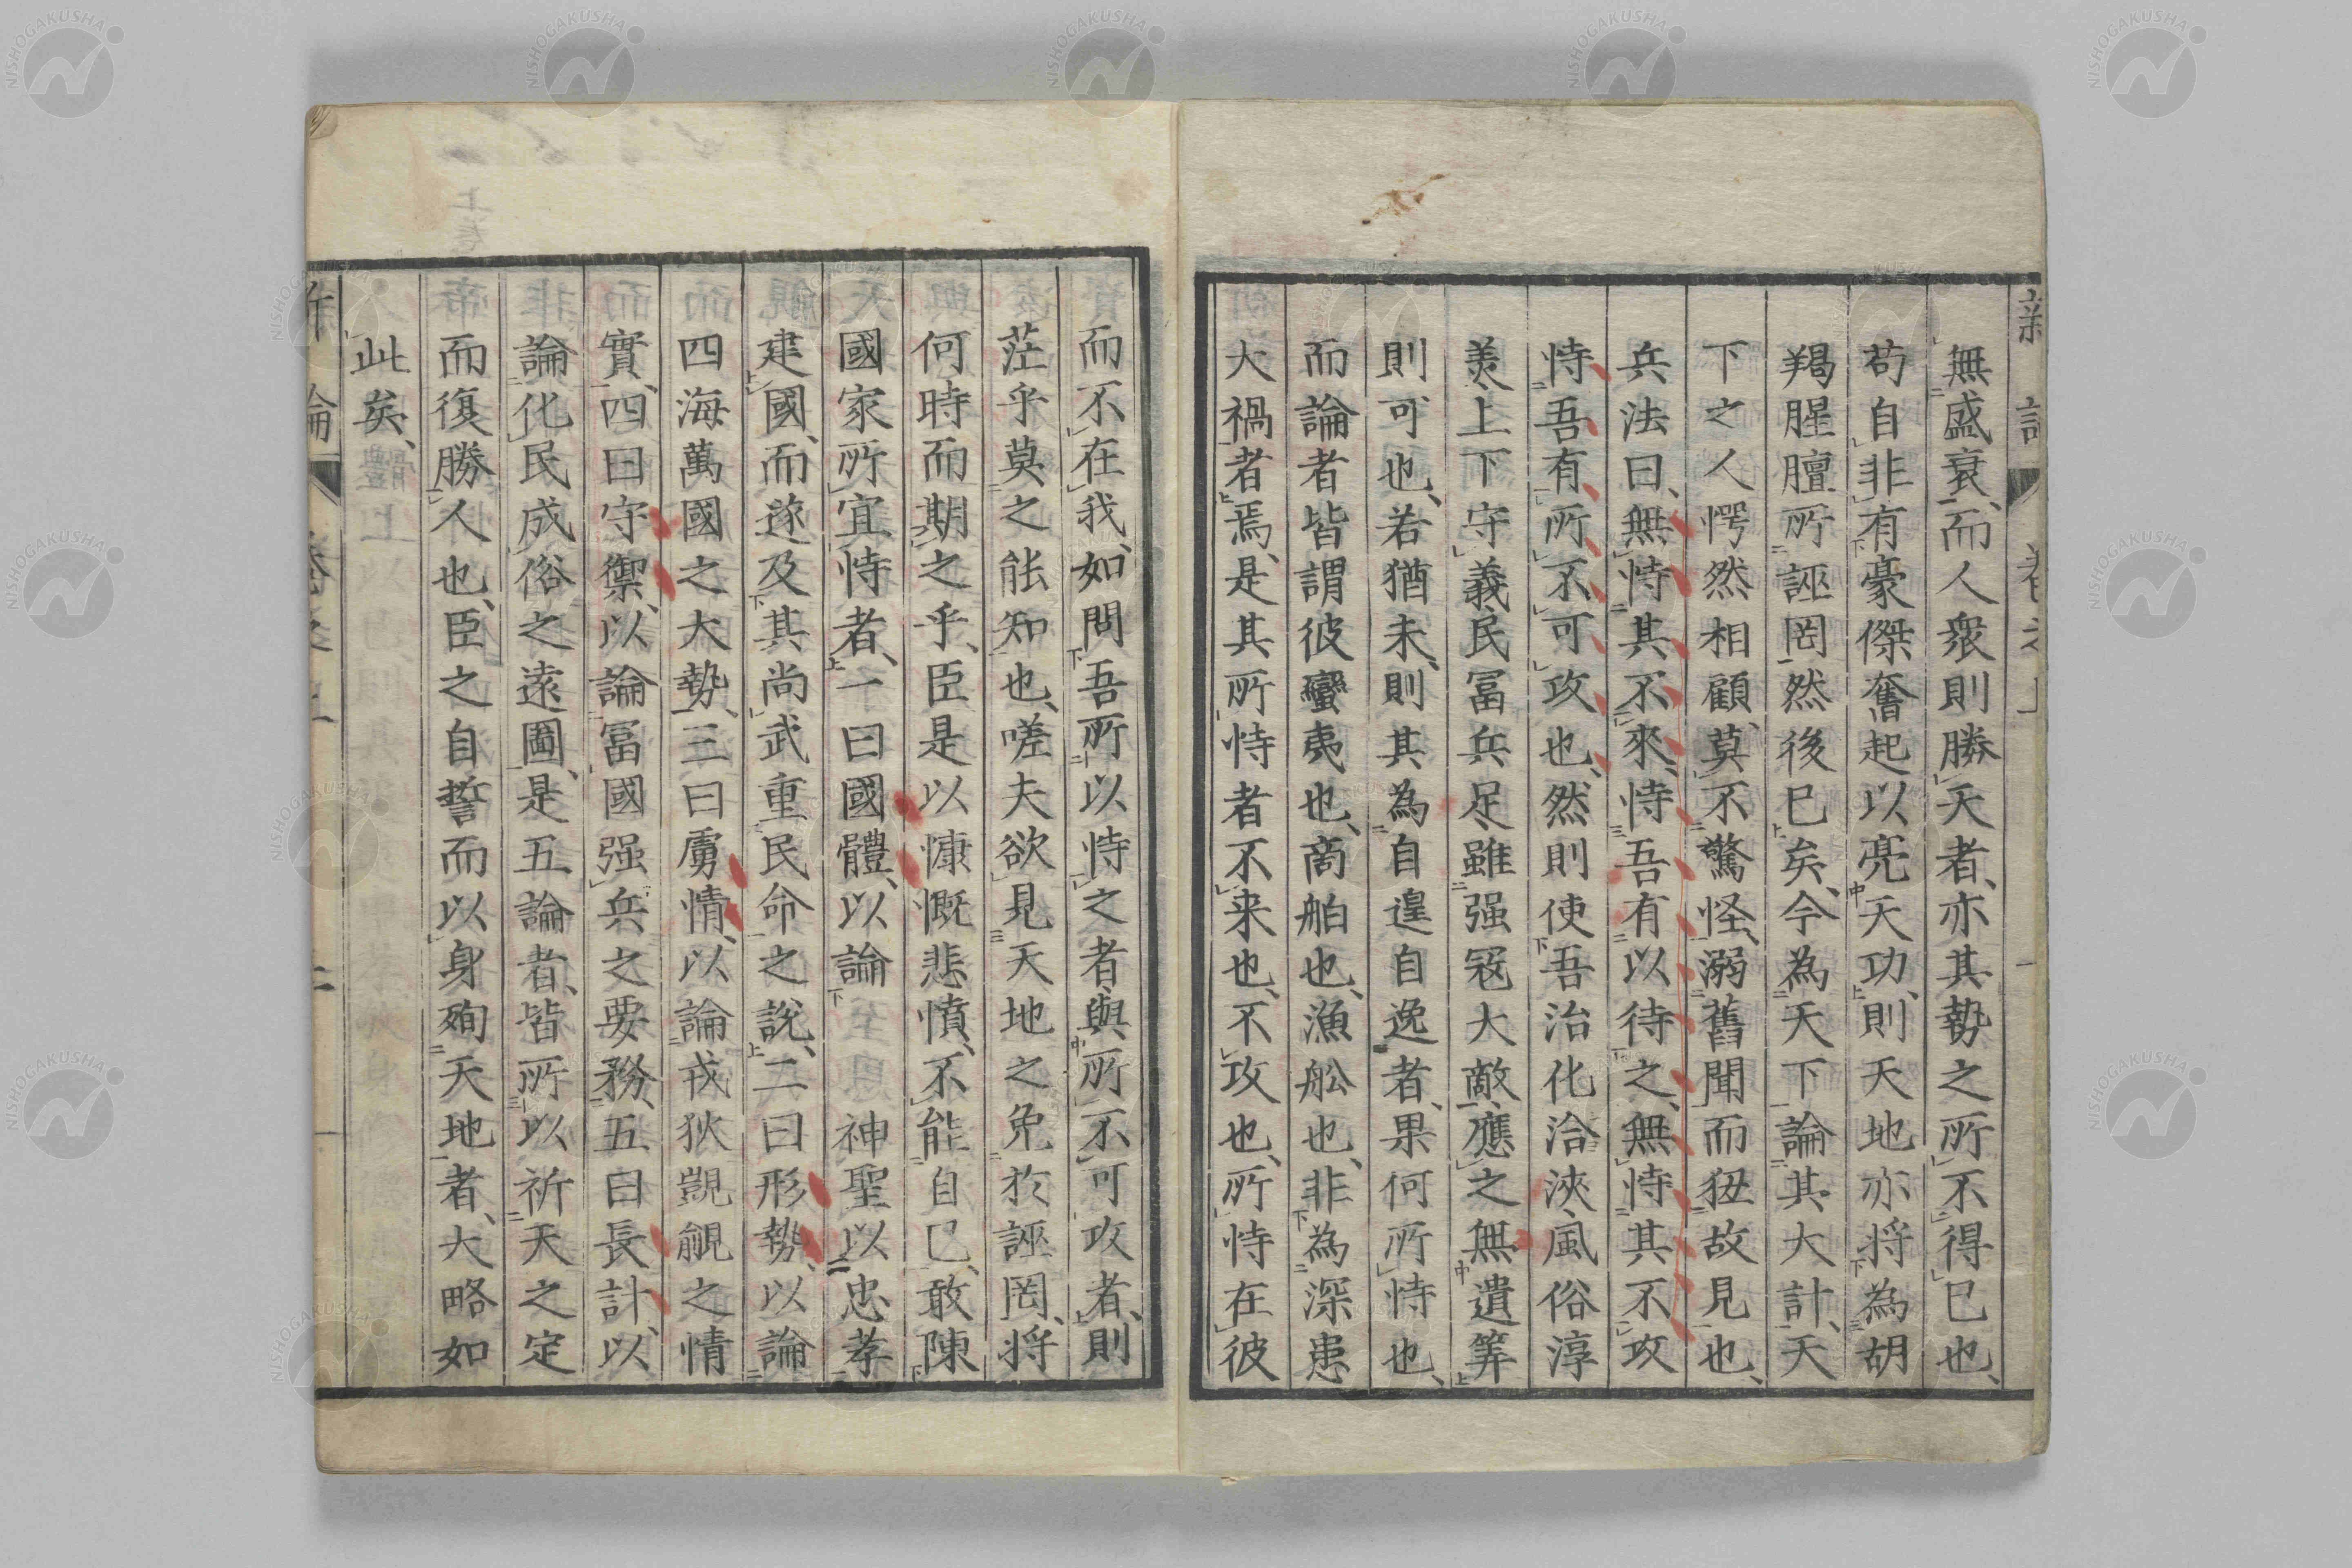 無盛衰、而人衆則勝天者、亦其勢之所不得已也、
苟自非有豪傑奮起以亮天功、則天地亦将為胡
羯腥膻所誣罔然後已矣、今為天下論其大計、天
下之人愕然相顧、莫不驚怪、溺舊聞而狃故見也、
兵法曰、無恃其不來、恃吾有以待之、無恃其不攻
恃吾有所不可攻也、然則使吾治化洽浹、風俗淳
美、上下守義、民冨兵足、雖强冦大敵、應之無遺筭
則可也、若猶未、則其為自遑自逸者、果何所恃也、
而論者皆謂彼蠻夷也、商舶也、漁舩也、非為深患
大禍者焉、是其所恃者不来也、不攻也、所恃在彼
而不在我、如問吾所以恃之者、與所不可攻者、則
茫乎莫之能知也、嗟夫欲見天地之免於誣罔、将
何時而期之乎、臣是以慷慨悲憤、不能自已、敢陳
國家所宜恃者、一曰國體、以論 神聖以忠孝
建國、而遂及其尚武重民命之說、二曰形勢、以論
四海萬國之大勢、三曰虜情、以論戎狄覬覦之情
實、四曰守禦、以論冨國强兵之要務、五曰長計、以
論化民成俗之遠圖、是五論者、皆所以祈天之定
而復勝人也、臣之自誓而以身殉天地者、大略如
此矣、
新論 卷之上